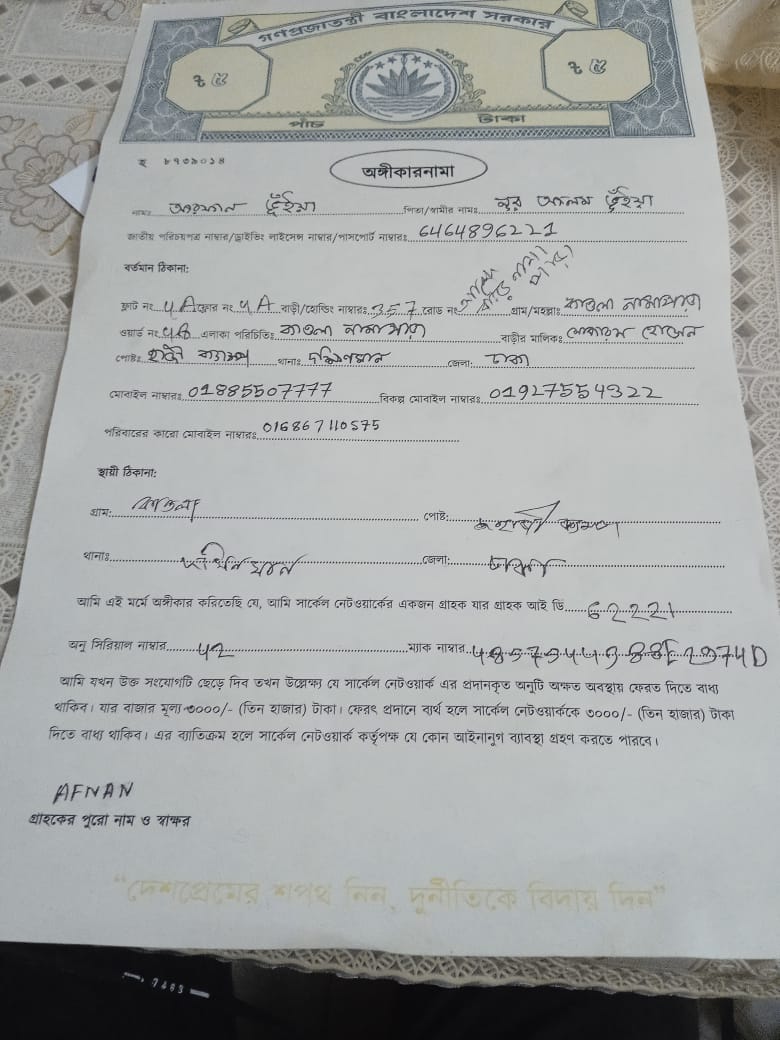 গণপ্রজাতন্ত্রী বাংলাদেশ সরকার
৳ ৫ ৳ ৫
পাঁচ টাকা
অঙ্গীকারনামা
নাম: আফনান ভূঁইয়া পিতা/স্বামীর নামঃ নুর আলম ভূঁইয়া
জাতীয় পরিচয়পত্র নাম্বার/ড্রাইভিং লাইসেন্স নাম্বার/পাসপোর্ট নাম্বারঃ 6464896221
বর্তমান ঠিকানা:
ফ্লাট নং 4A ফ্লোর নং 4A বাড়ী/হোল্ডিং নাম্বারঃ 357 রোড নং গ্রাম/মহল্লাঃ কাওলা নামাপাড়া
ওয়ার্ড নং 48 এলাকা পরিচিতিঃ কাওলা নামাপাড়া বাড়ীর মালিকঃ মোকারম হোসেন
পোষ্টঃ হাজী ক্যাম্প থানাঃ দক্ষিণখান জেলা: ঢাকা
মোবাইল নাম্বারঃ 01885507777 বিকল্প মোবাইল নাম্বারঃ 01927554322
পরিবারের কারো মোবাইল নাম্বারঃ 016867110575
স্থায়ী ঠিকানা:
গ্রাম: কাওলা পোষ্ট:
থানাঃ দক্ষিনখান জেলা: ঢাকা
আমি এই মর্মে অঙ্গীকার করিতেছি যে, আমি সার্কেল নেটওয়ার্কের একজন গ্রাহক যার গ্রাহক আই ডি 62221
অনু সিরিয়াল নাম্বার 42 ম্যাক নাম্বার
আমি যখন উক্ত সংযোগটি ছেড়ে দিব তখন উল্লেক্ষ্য যে সার্কেল নেটওয়ার্ক এর প্রদানকৃত অনুটি অক্ষত অবস্থায় ফেরত দিতে বাধ্য
থাকিব। যার বাজার মূল্য ৩০০০/- (তিন হাজার) টাকা। ফেরৎ প্রদানে ব্যর্থ হলে সার্কেল নেটওয়ার্ককে ৩০০০/- (তিন হাজার) টাকা
দিতে বাধ্য থাকিব। এর ব্যতিক্রম হলে সার্কেল নেটওয়ার্ক কর্তৃপক্ষ যে কোন আইনানুগ ব্যবস্থা গ্রহণ করতে পারবে।
AFNAN
গ্রাহকের পুরো নাম ও স্বাক্ষর
“দেশপ্রেমের শপথ নিন, দুর্নীতিকে বিদায় দিন”